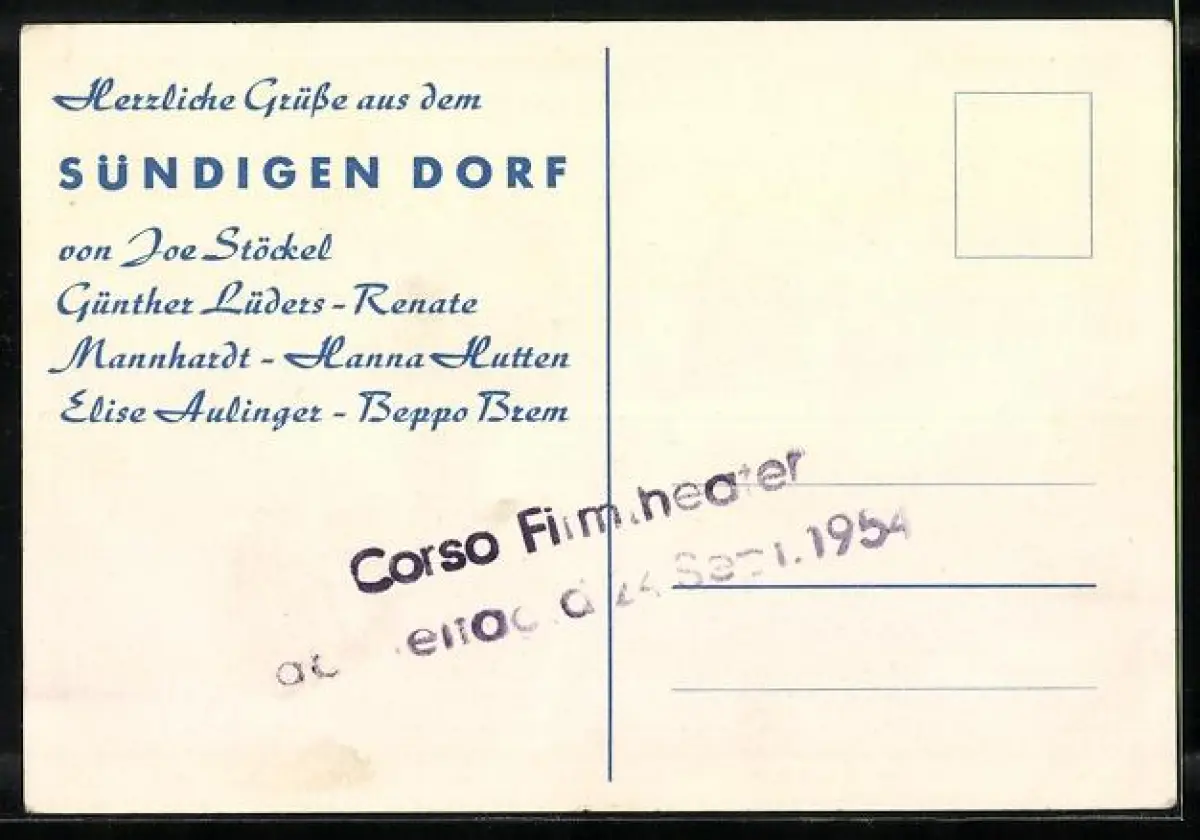 Herzliche Grüße aus dem
SÜNDIGEN DORF
von Joe Stöckel
Günther Lüders - Renate
Mannhardt - Hanna Hutten
Elise Aulinger - Beppo Brem
Corso Filmtheater
24 Sept. 1954